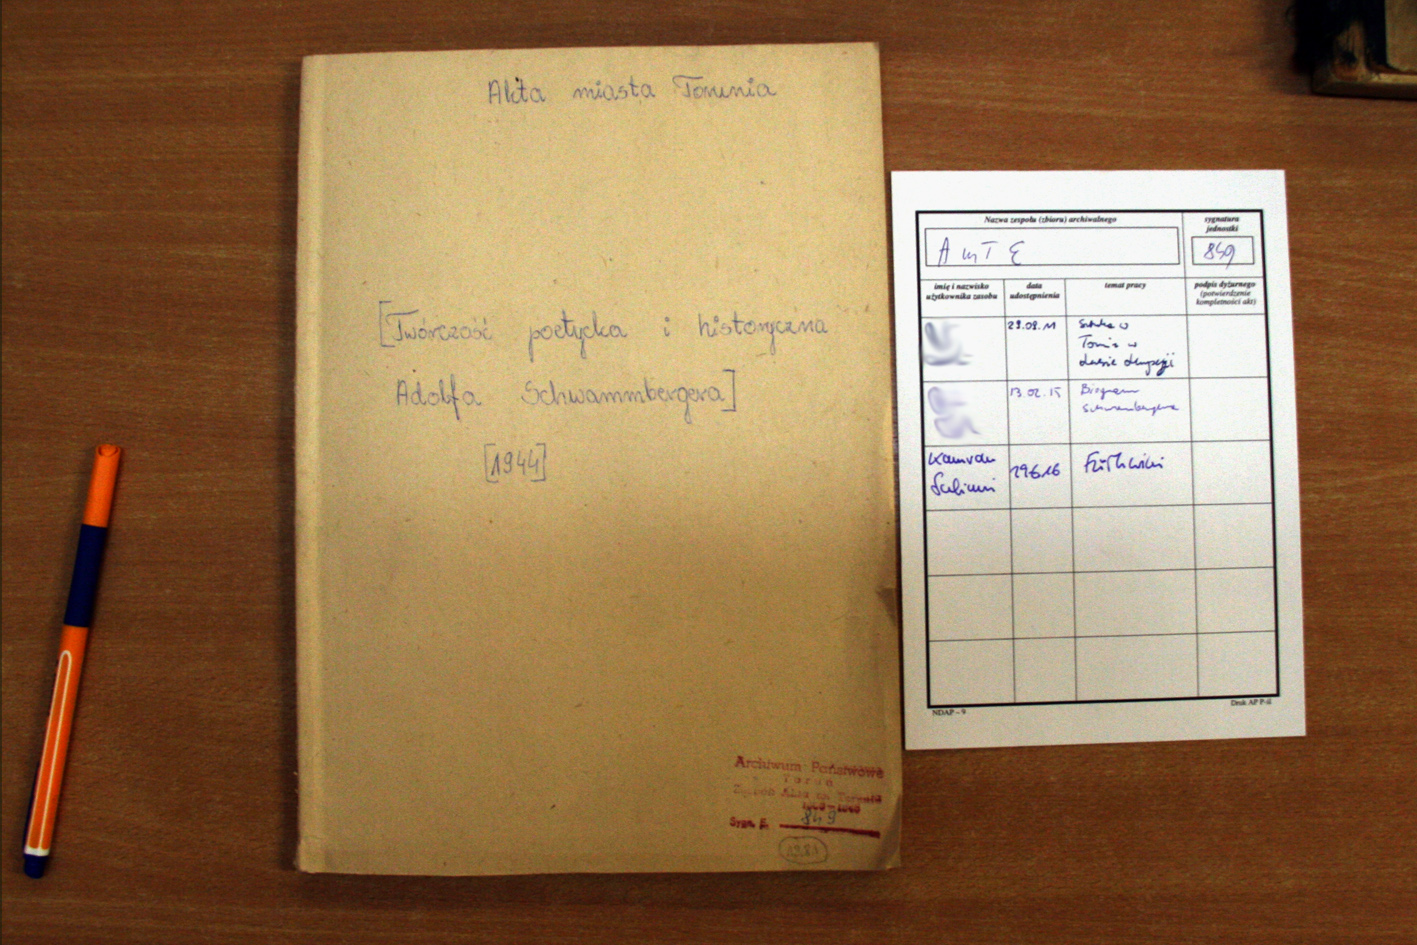 Akta miasta Torunia
[Twórczość poetycka i historyczna
Adolfa Schwammbergera]
[1944]
Archiwum Państwowe
Toruń
Zespół Akta m. Torunia
Sygn. E. 849
Nazwa zespołu (zbioru) archiwalnego
sygnatura
jednostki
AmT E
849
imię i nazwisko
użytkownika zasobu
data
udostępnienia
temat pracy
podpis dyżurnego
(potwierdzenie
kompletności akt)
23.08.11
Sztuka w
Toruniu w
okresie okupacji
13.02.15
Biogram
Schwambergera
Kamran
Salimi
29.6.16
FürthWiki
NDAP – 9
Druk AP P-ń